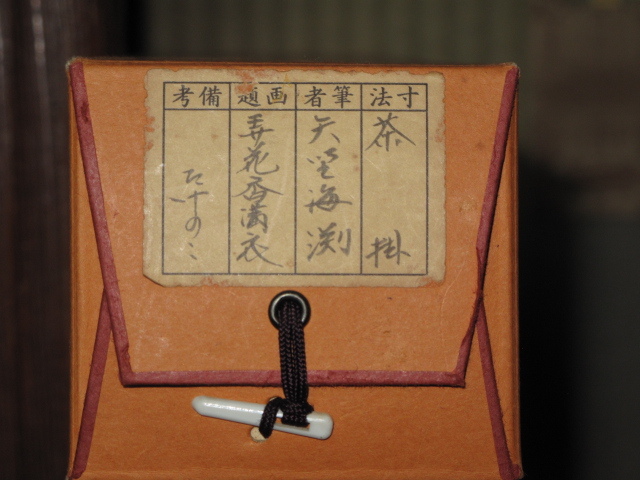 寸法
茶掛
筆者
海渕
画題
弄花香満衣
備考
たけのこ